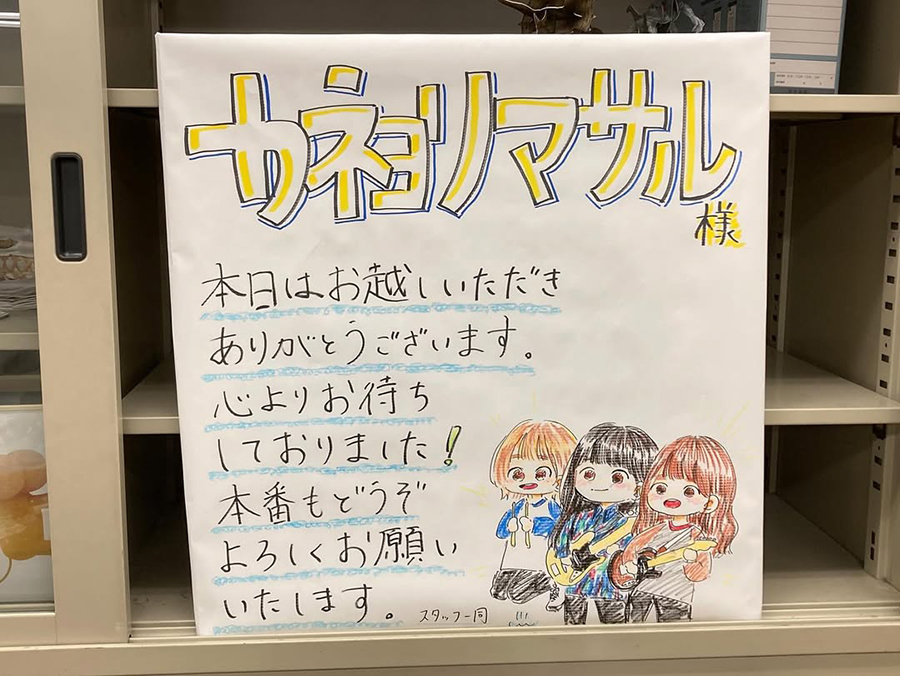 カネヨリマサル
様
本日はお越しいただき
ありがとうございます。
心よりお待ち
しておりました!
本番もどうぞ
よろしくお願い
いたします。
スタッフ一同